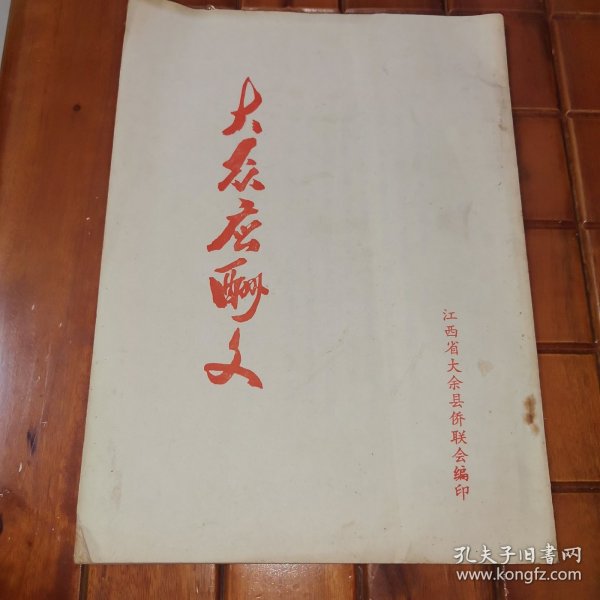 大众应酬文
江西省大余县侨联会编印
孔夫子旧书网
www.kongfz.com